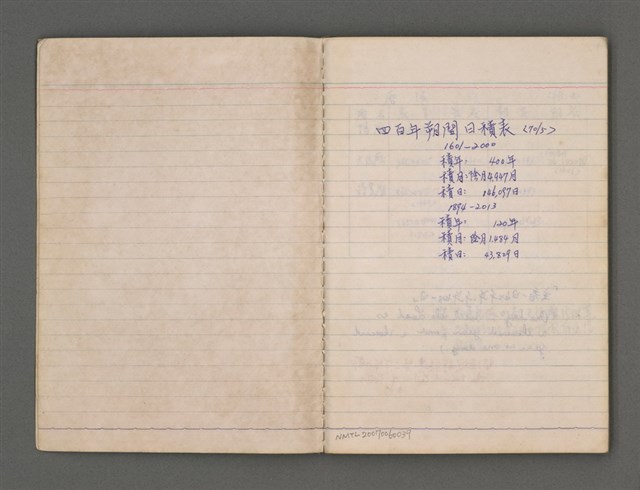 四百年朔閏日積表 <70/5>
1601-2000
積年: 400年
積月: 陰月4,947月
積日: 146,097日
1894-2013
積年: 120年
積月: 陰月1,484月
積日: 43,829日
NMTL20070060039